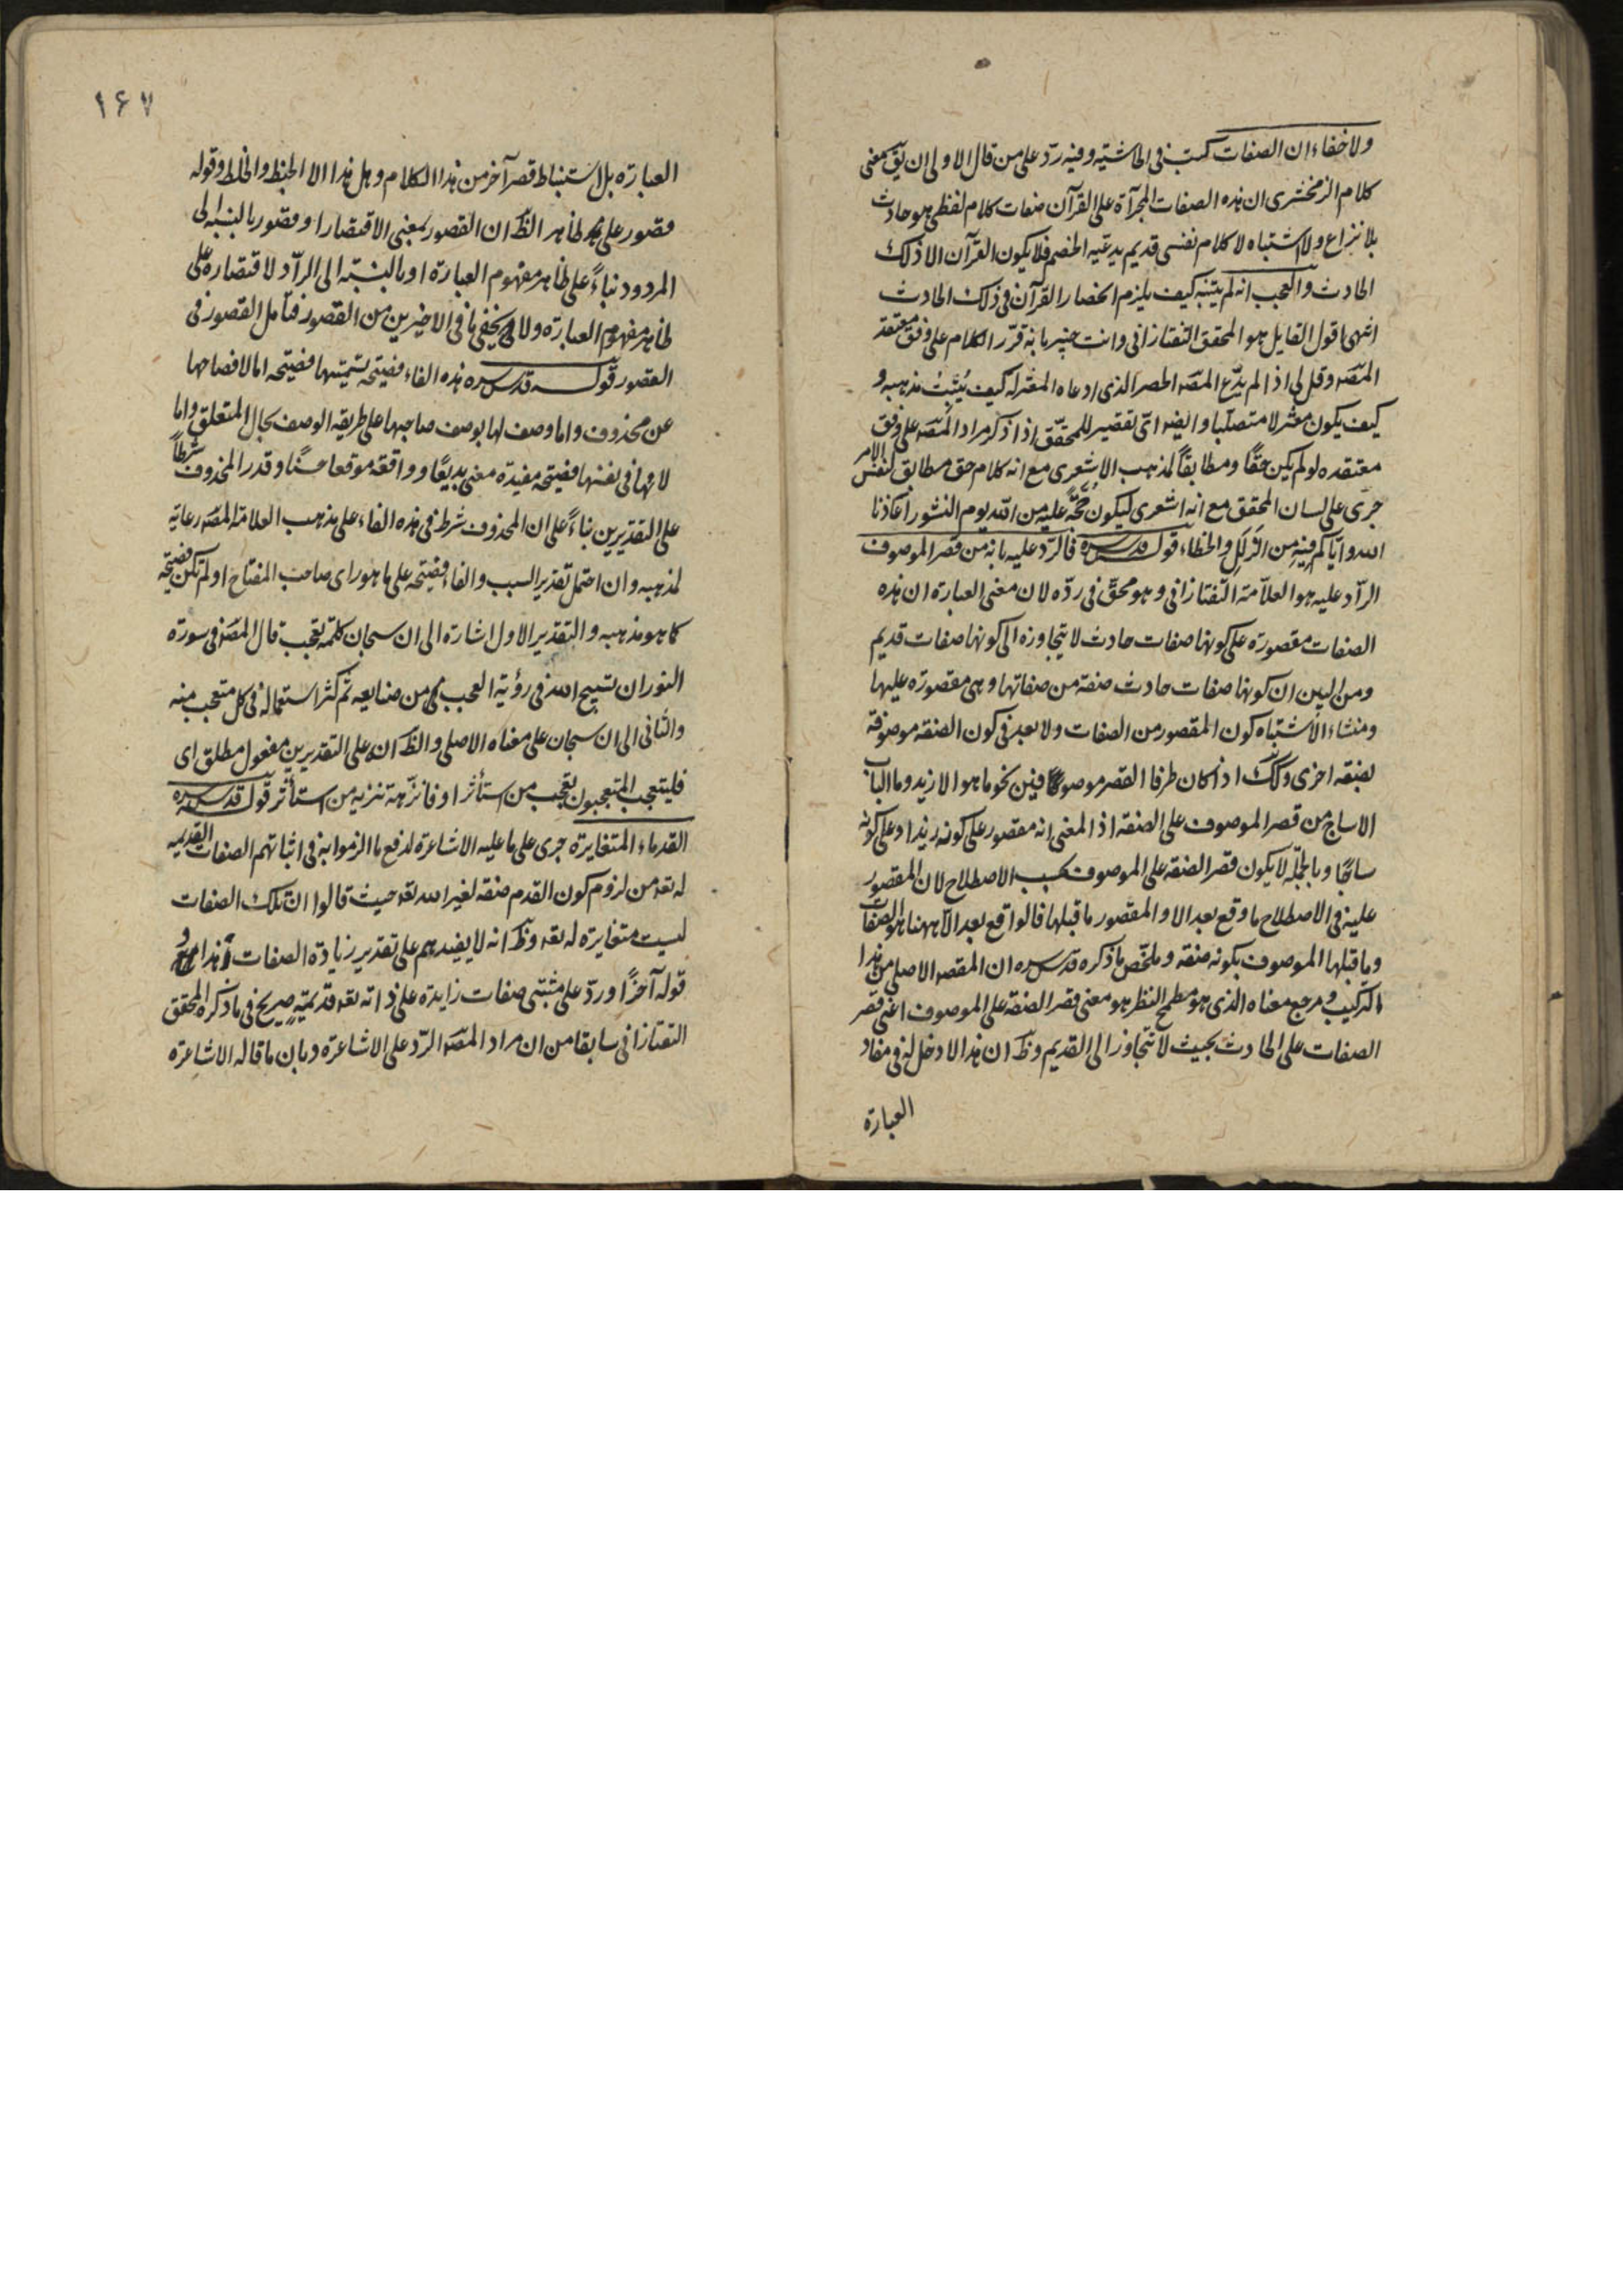 ولا خفاء ان الصفات كتب فى الحاشية وفيه ردّ على من قال الاولى ان يق معنى
كلام الزمخشرى ان هذه الصفات المجرآة على القرآن صفات كلام لفظى هو حادث
بلا نزاع ولا اشتباه لا كلام نفسى قديم يدعيه الخصم فلا يكون القرآن الا ذلك
الحادث والعجب انه لم يتنبه كيف يلزم انحصار القرآن فى ذلك الحادث
انتهى اقول القايل هو المحقق التفتازانى وانت خبير بانه قرّر الكلام على وفق معتقد
المصّ وقل لى اذا لم يدّع المصّ الحصر الذى ادعاه المعتزله كيف يُثبَتُ مذهبه و
كيف يكون معتزلا متصلبا وايضا اىّ تقصير للمحقّق اذا ذكر مراد المصّ على وفق
معتقده لو لم يكن حقًا ومطابقاً لمذهب الاشعرى مع انه كلام حق مطابق لنفس الامر
جرى على لسان المحقق مع انه اشعرى ليكون حُجّة عليه من اللّه يوم النشور اعاذنا
الله وايّاكم فيه من الزلل والخطاء قوله قدس سره فالرّد عليه بانه من قصر الموصوف
الرّاد عليه هو العلاّمة التّفتازانى وهو محقّ فى ردّه لان معنى العبارة ان هذه
الصفات مقصورة على كونها صفات حادث لا يتجاوزه الى كونها صفات قديم
ومن البين ان كونها صفات حادث صفة من صفاتها وهى مقصورة عليها
ومنشاء الاشتباه كون المقصور من الصفات ولا بعد فى كون الصفة موصوفة
بصفة اخرى وكذلك اذا كان طرفا القصر موصوفين نحو ما هو الا زيد وما الباب
الا ساج من قصر الموصوف على الصفة اذ المعنى انه مقصور على كونه زيدا وعلى كونه
ساجًا وبالجملة لا يكون قصر الصفة على الموصوف بحسب الاصطلاح لان المقصور
عليه فى الاصطلاح ما وقع بعد الا والمقصور ما قبلها فالواقع بعد الاّ ههنا هو الصفات
وما قبلها الموصوف بكونه صفة وملخّص ما ذكره قدس سره ان المقصد الاصلى من هذا
التركيب ومرجع معناه الذى هو مطمح النظر هو معنى قصر الصفة على الموصوف اعنى قصر
الصفات على الحادث بحيث لا تتجاوز الى القديم وظ ان هذا لا دخل له فى مفاد
العبارة
١٦٧
العبارة بل استنباط قصر آخر من هذا الكلام وهل هذا الا الخبط والخلط وقوله
مقصور على ظاهر الظ ان القصور بمعنى الاقتصار او مقصور بالنسبة الى
المردود بناءً على ظاهر مفهوم العبارة او بالنسبة الى الرّاد لاقتصاره على
ظاهر مفهوم العبارة ولا يخفى ما فى الاخيرين من القصور فتأمل القصور فى
القصور قوله قدس سره هذه الفاء فضيحة تسميتها فضيحه اما لافصاحها
عن محذوف واما وصف لها بوصف صاحبها على طريقه الوصف بحال المتعلق واما
لانها فى نفسها فضيحه مفيدة معنى بديعًا وواقعة موقعا حسنًا وقدر المحذوف شرطاً
على التقديرين بناءً على ان المحذوف شرط فى هذه الفاء على مذهب العلامة المصّ رعاية
لمذهبه وان احتمل تقدير السبب والفاء فضيحه على ما هو راى صاحب المفتاح او لم تكن فضيحة
كما هو مذهبه والتقدير الاول اشارة الى ان سبحان كلمة تعجب قال المصّ فى سورة
النور ان تسبيح الله فى رؤية العجب من صنايعه ثم كثر استعماله فى كل متعجب منه
والثّانى الى ان سبحان على معناه الاصلى والظ انه على التقديرين مفعول مطلق اى
فليتعجب المتعجبون تعجب من استأثر او فانزّهه تنزيه من استأثر قوله قدس سره
القدماء المتغايرة جرى على ما عليه الاشاعرة لدفع ما الزموا به فى اثباتهم الصفات القديمه
له تعه من لزوم كون القدم صفة لغير الله تعه حيث قالوا انّ تلك الصفات
ليست متغايرة له تعه وظ انه لا يفيدهم على تقدير زيادة الصفات وهذا مع
قوله آخرًا وردّ على مثبتى صفات زايدة على ذاته تعه قديمّةٍ صريح فى ما ذكره المحقق
التفتازانى سابقا من ان مراد المصّ الرّد على الاشاعرة وبان ما قاله الاشاعرة